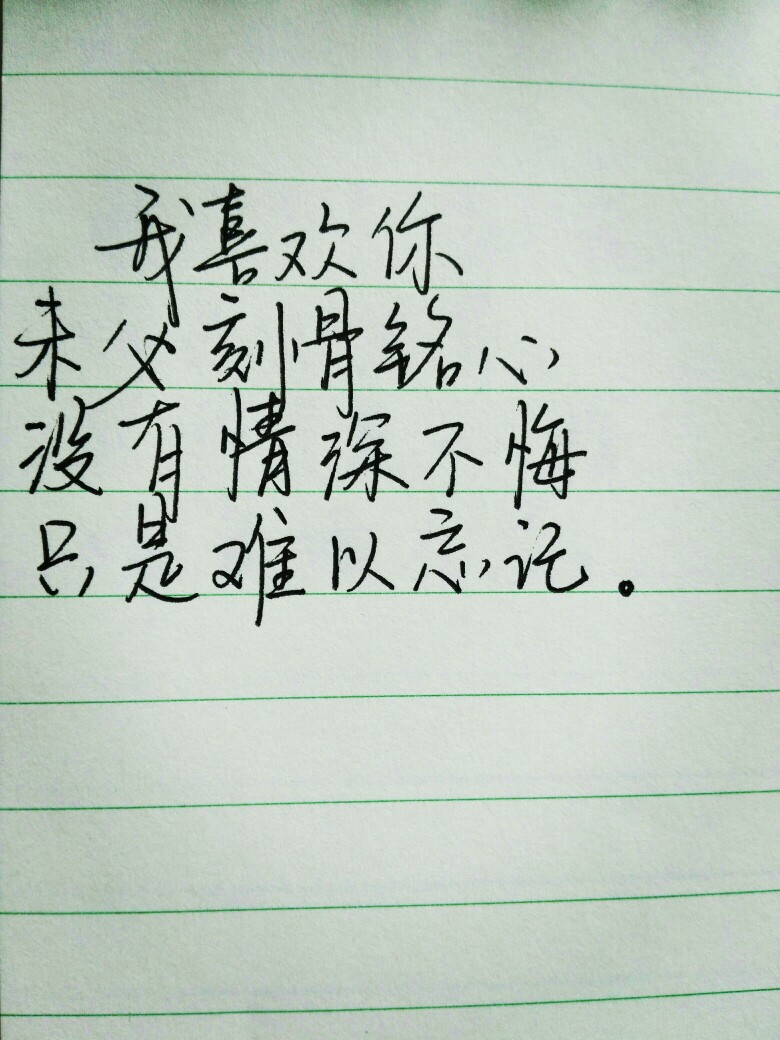 我喜欢你
未父刻骨铭心
没有情深不悔
只是难以忘记。